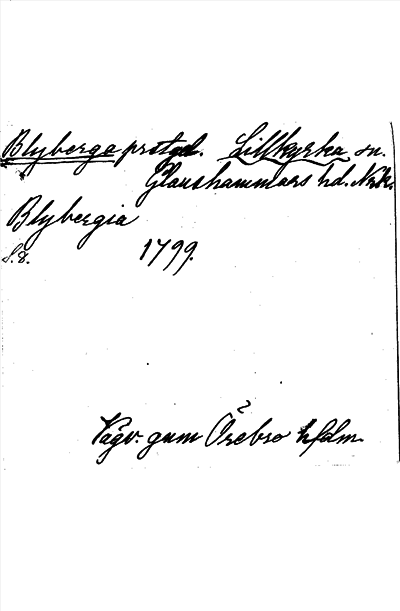 Blyberga prstgd. Lillkyrka sn.
Glanshammars hd. Nrk.
Blybergia
S. 8. 1799.
Vägv. gnm Örebro hfdm.